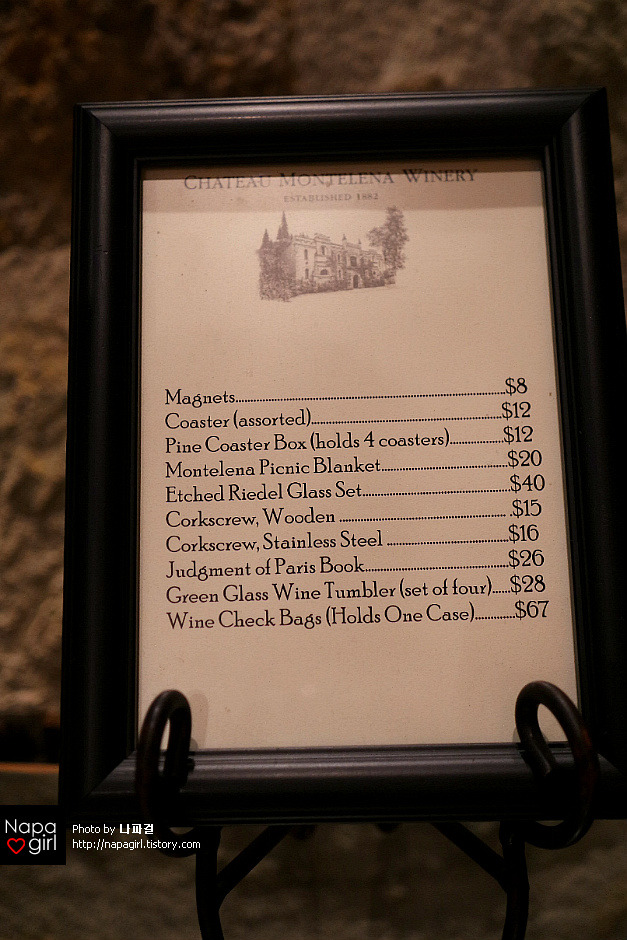 CHATEAU MONTELENA WINERY
ESTABLISHED 1882
Magnets..........$8
Coaster (assorted)..........$12
Pine Coaster Box (holds 4 coasters)..........$12
Montelena Picnic Blanket..........$20
Etched Riedel Glass Set..........$40
Corkscrew, Wooden .......... .$15
Corkscrew, Stainless Steel ..........$16
Judgment of Paris Book..........$26
Green Glass Wine Tumbler (set of four)......$28
Wine Check Bags (Holds One Case)..........$67
Napa girl
Photo by 나파걸
http://napagirl.tistory.com